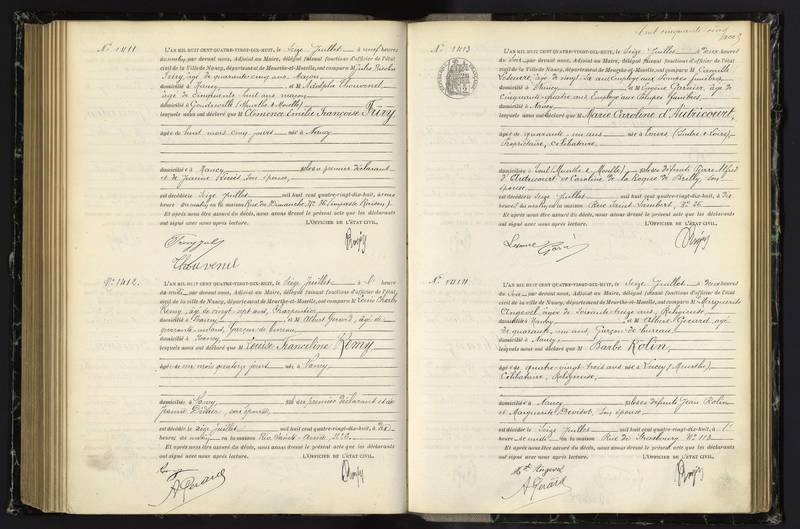 N.º 1411
L'AN MIL HUIT CENT QUATRE-VINGT-DIX-HUIT, le Seize Juillet à neuf heures
du matin, par devant nous, Adjoint au Maire, délégué faisant fonctions d'officier de l'état
civil de la Ville de Nancy, département de Meurthe-et-Moselle, ont comparu M Jules Nicolas
âgé de quarante cinq ans, Maçon,
domicilié à Nancy et M Adolphe Chouvenel
âgé de cinquante huit ans, maçon
domicilié à Gondreville (Meurthe & Moselle)
lesquels nous ont déclaré que M Clémence Emélie Françoise
âgée de huit mois cinq jours née à Nancy
domiciliée à Nancy fille du premier déclarant
et de Jeanne son épouse,
est décédée le Seize Juillet mil huit cent quatre-vingt-dix-huit, à
heure du matin en la maison Rue du
Et après nous être assuré du décès, nous avons dressé le présent acte que les déclarants
ont signé avec nous après lecture. L'OFFICIER DE L'ÉTAT CIVIL.
Chouvenel
N.º 1412.
L'AN MIL HUIT CENT QUATRE-VINGT-DIX-HUIT, le Seize Juillet à
par devant nous, Adjoint au Maire, délégué faisant fonctions d'officier de l'état
civil de la ville de Nancy, département de Meurthe-et-Moselle, ont comparu M Louis Charles
Rémy, âgé de vingt sept ans, Charpentier
domicilié à Nancy et M Albert Gérard, âgé de
quarante un ans, Garçon de bureau
domicilié à Nancy
lesquels nous ont déclaré que M Louise Franceline Rémy
âgée de un mois quatorze jours née à Nancy
domiciliée à Nancy fille du premier déclarant et de
Jeanne Didier, son épouse,
est décédée le seize juillet mil huit cent quatre-vingt-dix-huit, à
heures du matin en la maison Rue
Et après nous être assuré du décès, nous avons dressé le présent acte que les déclarants
ont signé avec nous après lecture. L'OFFICIER DE L'ÉTAT CIVIL.
A Gérard
Cent cinquante-cinq
N.º 1413
L'AN MIL HUIT CENT QUATRE-VINGT-DIX-HUIT, le Seize Juillet à deux heures
du soir, par devant nous, Adjoint au Maire, délégué faisant fonctions d'officier de l'état
civil de la Ville de Nancy, département de Meurthe-et-Moselle, ont comparu M Camille
âgé de vingt six ans Employé aux Pompes funèbres,
domicilié à Nancy et M Eugène Garnier, âgé de
Cinquante-quatre ans, Employé aux Pompes funèbres,
domicilié à Nancy
lesquels nous ont déclaré que M Marie Caroline d'Hutricourt,
âgée de quarante un ans née à Tours (Indre & Loire)
Propriétaire, célibataire
domiciliée à Toul (Meurthe & Moselle) fille des défunts Pierre Alfred
d'Hutricourt et Caroline de la Roque de Brilly, son
épouse
est décédée le Seize Juillet mil huit cent quatre-vingt-dix-huit, à dix
heures du matin en la maison Rue Saint Lambert, N.º 26
Et après nous être assuré du décès, nous avons dressé le présent acte que les déclarants
ont signé avec nous après lecture. L'OFFICIER DE L'ÉTAT CIVIL.
N.º 1414
L'AN MIL HUIT CENT QUATRE-VINGT-DIX-HUIT, le Seize Juillet à deux heures
du soir, par devant nous, Adjoint au Maire, délégué faisant fonctions d'officier de l'état
civil de la ville de Nancy, département de Meurthe-et-Moselle, ont comparu M Marguerite
âgée de soixante-treize ans, Religieuse,
domiciliée à Nancy et M Albert Gérard, âgé
de quarante un ans, Garçon de bureau,
domicilié à Nancy
lesquels nous ont déclaré que M Barbe Rolin,
âgée de quatre-vingt-trois ans née à (Meurthe)
Célibataire, Religieuse,
domiciliée à Nancy fille des défunts Jean Rolin
et Marguerite son épouse
est décédée le Seize Juillet mil huit cent quatre-vingt-dix-huit, à
heure en la maison Rue de Strasbourg N.º 113
Et après nous être assuré du décès, nous avons dressé le présent acte que les déclarants
ont signé avec nous après lecture. L'OFFICIER DE L'ÉTAT CIVIL.
A Gérard